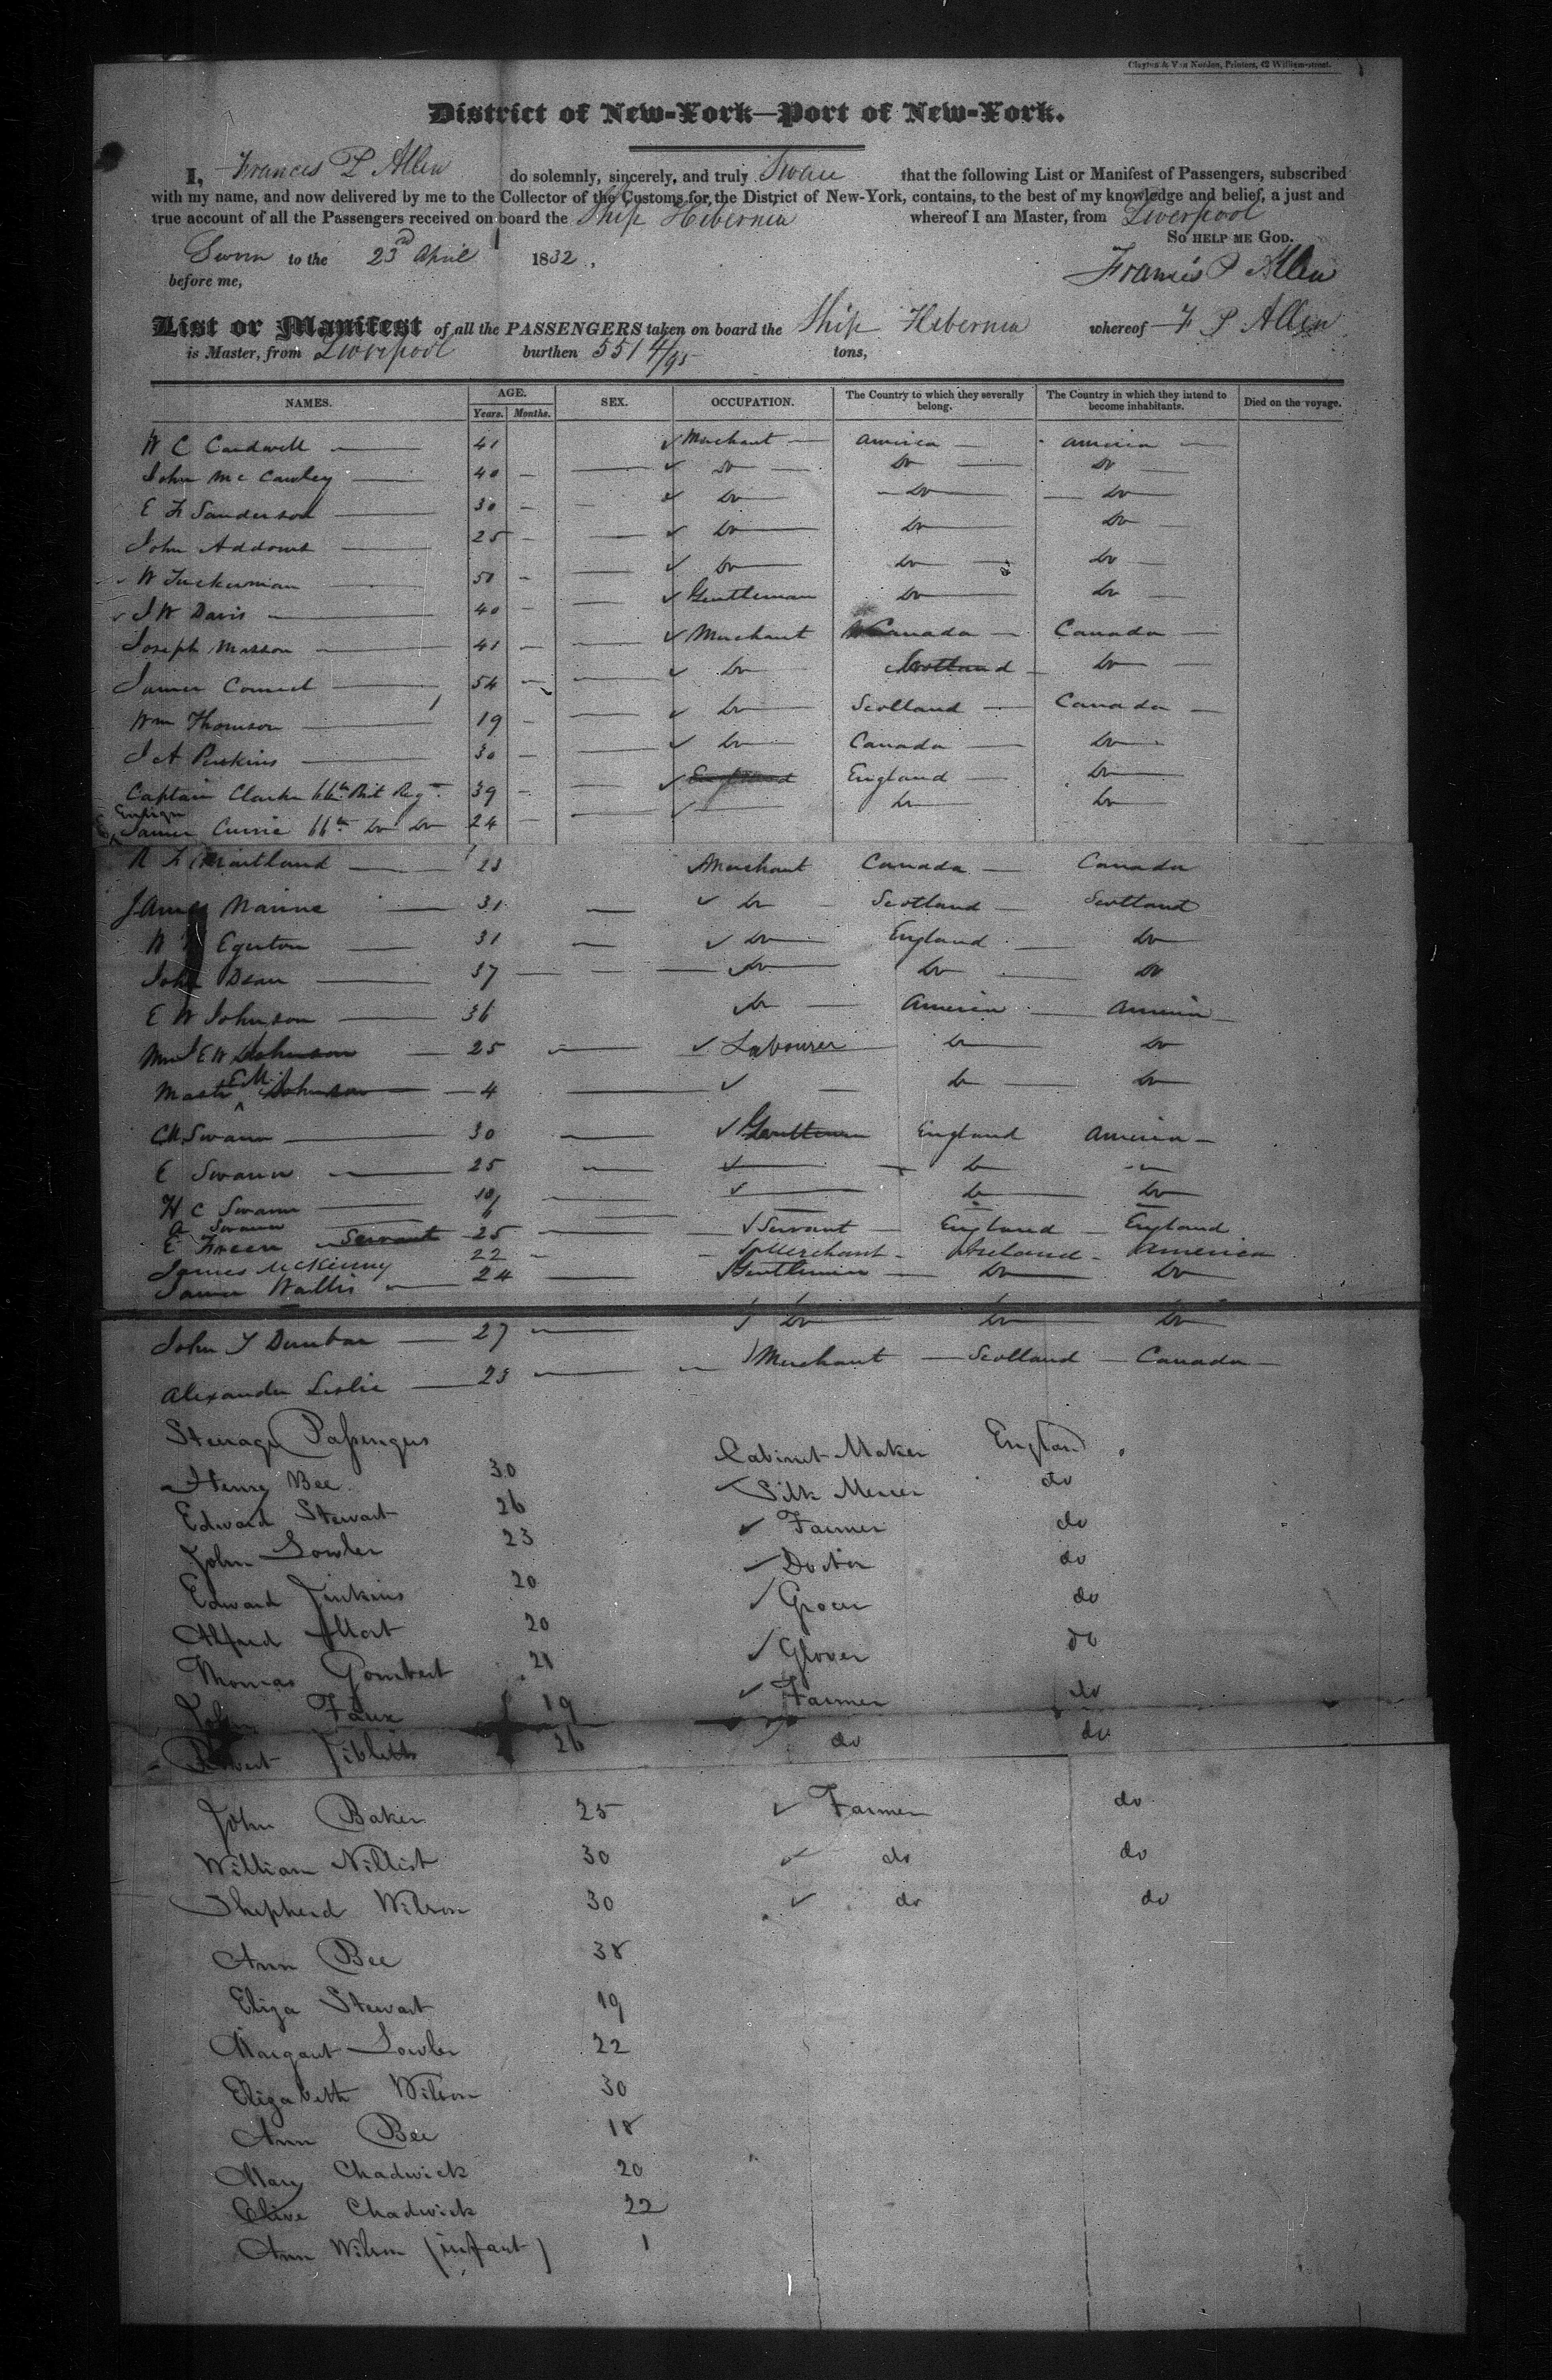 Clayton & Van Norden, Printers, 42 William-street.
District of New-York—Port of New-York.
I, Francis P Allen do solemnly, sincerely, and truly Swear that the following List or Manifest of Passengers, subscribed
with my name, and now delivered by me to the Collector of the Customs for the District of New-York, contains, to the best of my knowledge and belief, a just and
true account of all the Passengers received on board the Ship Hibernia whereof I am Master, from Liverpool
So HELP ME GOD.
Sworn to the 23rd April 1832,
before me,
Francis P Allen
List or Manifest of all the PASSENGERS taken on board the Ship Hibernia whereof F P Allen
is Master, from Liverpool burthen 551 4/95 tons,
NAMES. AGE. SEX. OCCUPATION. The Country to which they severally belong. The Country in which they intend to become inhabitants. Died on the voyage.
Years. Months.
W C Cardwell 41 Merchant America America
John Mc Cawley 40 Do Do Do
E F Sanderson 30 Do Do Do
John Addoms 25 Do Do Do
W Tuckerman 50 Do Do Do
J W Davis 40 Gentleman Do Do
Joseph Masson 41 Merchant Canada Canada
James 54 Do Scotland Do
Wm Thomson 19 Do Scotland Canada
J A Perkins 30 Do Canada Do
Captain Clarke 66th Regt 39 England England Do
Ensign
James Currie 66th Do Do 24 Do Do
R F Maitland 23 Merchant Canada Canada
James Nairne 31 Do Scotland Scotland
W Egerton 31 Do England Do
John Dean 37 Do Do Do
E W Johnson 36 Do America America
Mrs E W Johnson 25 Labourer Do Do
Mastr E M Johnson 4 Do Do
Swann 30 Gentleman England America
E Swann 25 Do
H C Swann Do Do
A Swann
E Freen Servant 25 Servant England England
James McKenny 22 Merchant Ireland America
James Wallis 24 Gentleman Do Do
John T Dunbar 27 Do Do Do
Alexander Leslie 23 Merchant Scotland Canada
Steerage Passengers
Henry Bee 30 Cabinet Maker England
Edward Stewart 26 Silk Mercer do
John Lowler 23 Farmer do
Edward Jinkins 20 Doctor do
Alfred Mort 20 Grocer do
Thomas 21 Glover do
John Faux 19 Farmer do
Robert Tibbetts 26 do do
John Baker 25 Farmer do
William Nillist 30 do do
Shepherd Wilson 30 do do
Ann Bee 38
Eliza Stewart 19
Margaret Lowler 22
Elizabeth Wilson 30
Ann Bee 18
Mary Chadwick 20
Olive Chadwick 22
Ann Wilson (infant) 1